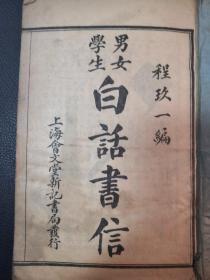 程玖一編
男女學生
白話書信
上海會文堂新記書局發行